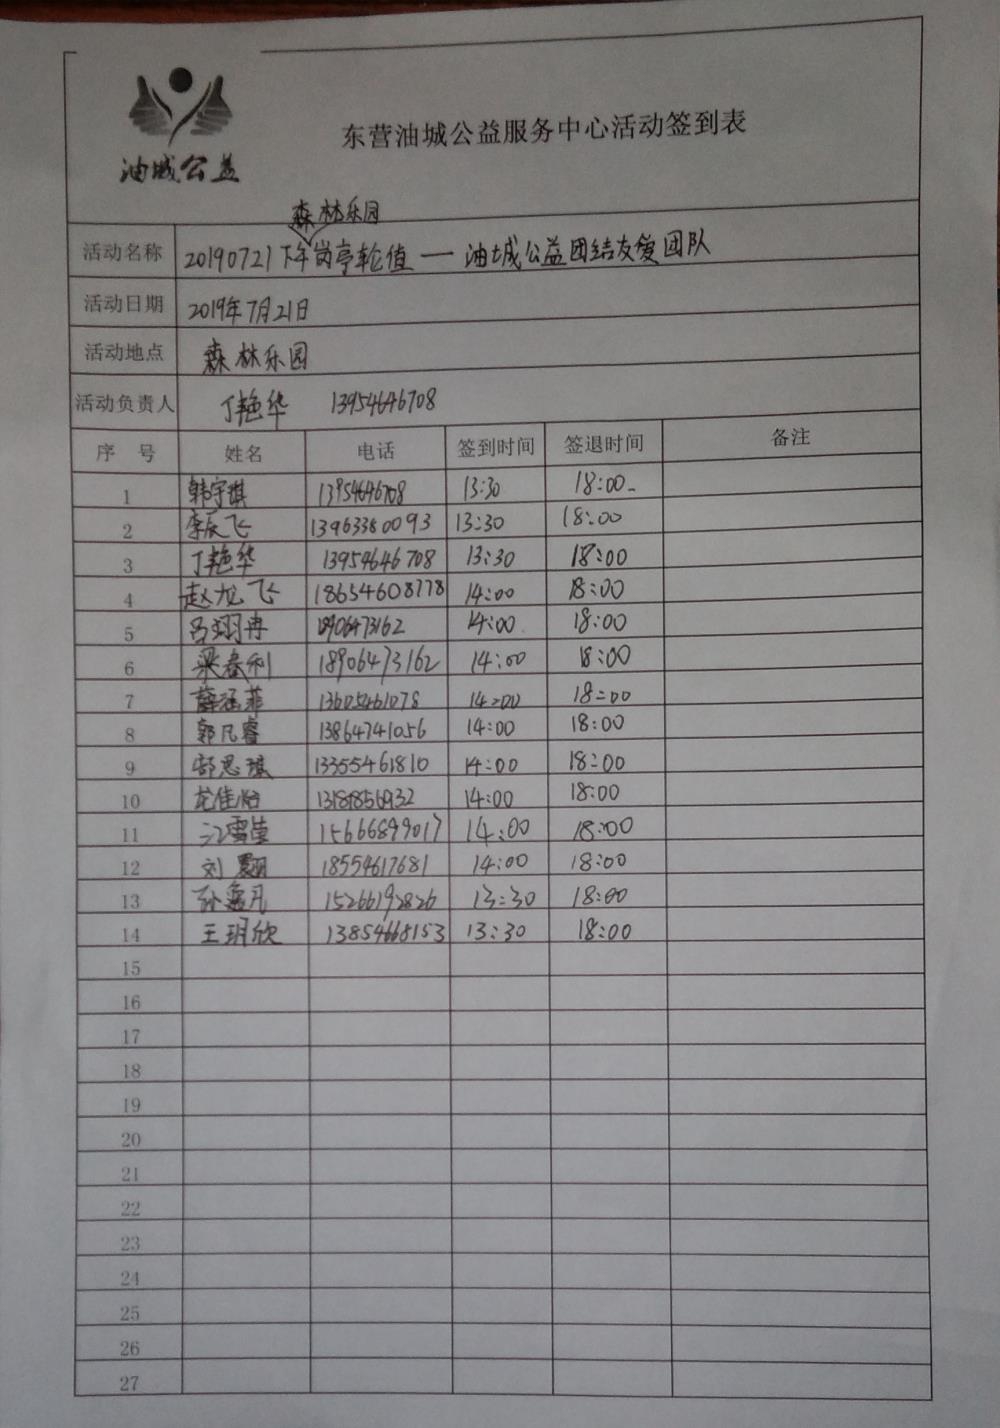 油城公益
东营油城公益服务中心活动签到表
森林乐园
活动名称 20190721下午岗亭轮值—油城公益团结友爱团队
活动日期 2019年7月21日
活动地点 森林乐园
活动负责人 丁艳华 13954646708
序号 姓名 电话 签到时间 签退时间 备注
1 韩宇琪 13954646708 13:30 18:00
2 李辰飞 13963380093 13:30 18:00
3 丁艳华 13954646708 13:30 18:00
4 赵龙飞 18654608778 14:00 18:00
5 吕翊冉 18906473162 14:00 18:00
6 梁春利 18906473162 14:00 18:00
7 薛涵菲 13605461078 14:00 18:00
8 郭凡睿 13864741056 14:00 18:00
9 郜思琪 13355461810 14:00 18:00
10 龙佳怡 14:00 18:00
11 江雪莹 15666899017 14:00 18:00
12 刘 18554617681 14:00 18:00
13 孙凡 15266192826 13:30 18:00
14 王玥欣 13854668153 13:30 18:00
15
16
17
18
19
20
21
22
23
24
25
26
27